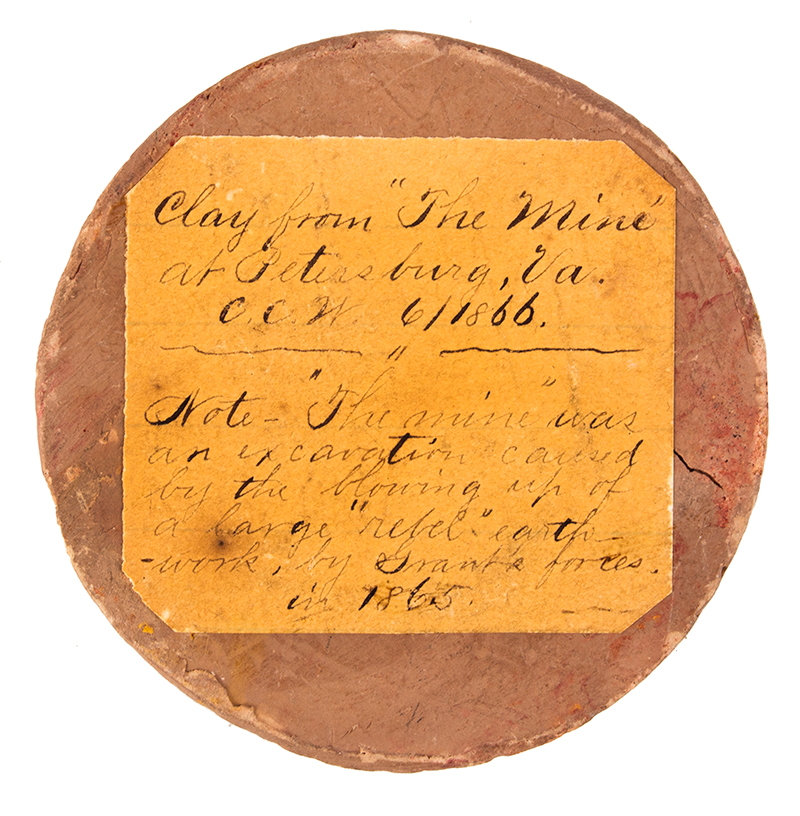 Clay from "The Mine"
at Petersburg, Va.
C. C. W. 6/1866.
"
Note - "The mine" was
an excavation caused
by the blowing up of
a large "rebel" earth-
-work, by Grant's forces.
in 1865.